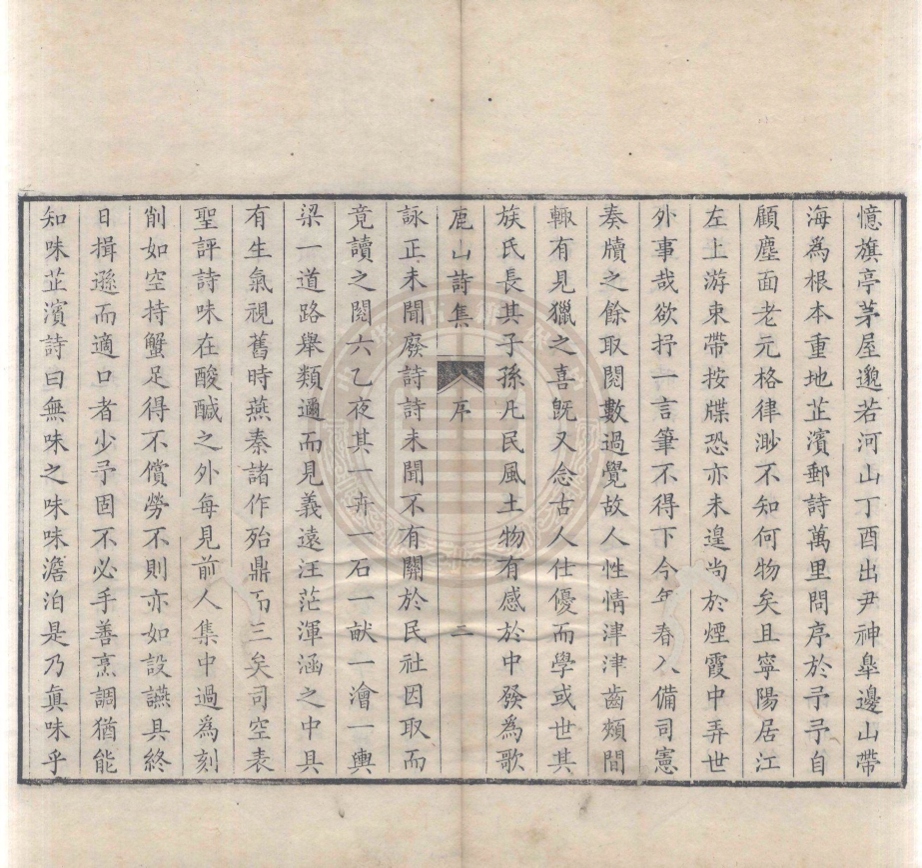 憶旗亭茅屋邈若河山丁酉出尹神臯邊山帶
海爲根本重地芷濱郵詩萬里問序於予予自
顧塵面老元格律渺不知何物矣且寧陽居江
左上游束帶按牒恐亦未遑尚於煙霞中弄世
外事哉欲抒一言筆不得下今年春入備司憲
奏牘之餘取閱數過覺故人性情津津齒頰間
輙有見獵之喜旣又念古人仕優而學或世其
族氏長其子孫凡民風土物有感於中發爲歌
鹿山詩集 序 二
詠正未聞廢詩詩未聞不有關於民社因取而
竟讀之閱六乙夜其一卉一石一猷一澮一輿
梁一道路舉類邇而見義遠汪茫渾涵之中具
有生氣視舊時燕秦諸作殆鼎而三矣司空表
聖評詩味在酸醎之外每見前人集中過爲刻
削如空持蟹足得不償勞不則亦如設讌具終
日揖遜而適口者少予固不必手善烹調猶能
知味芷濱詩曰無味之味味澹泊是乃眞味乎